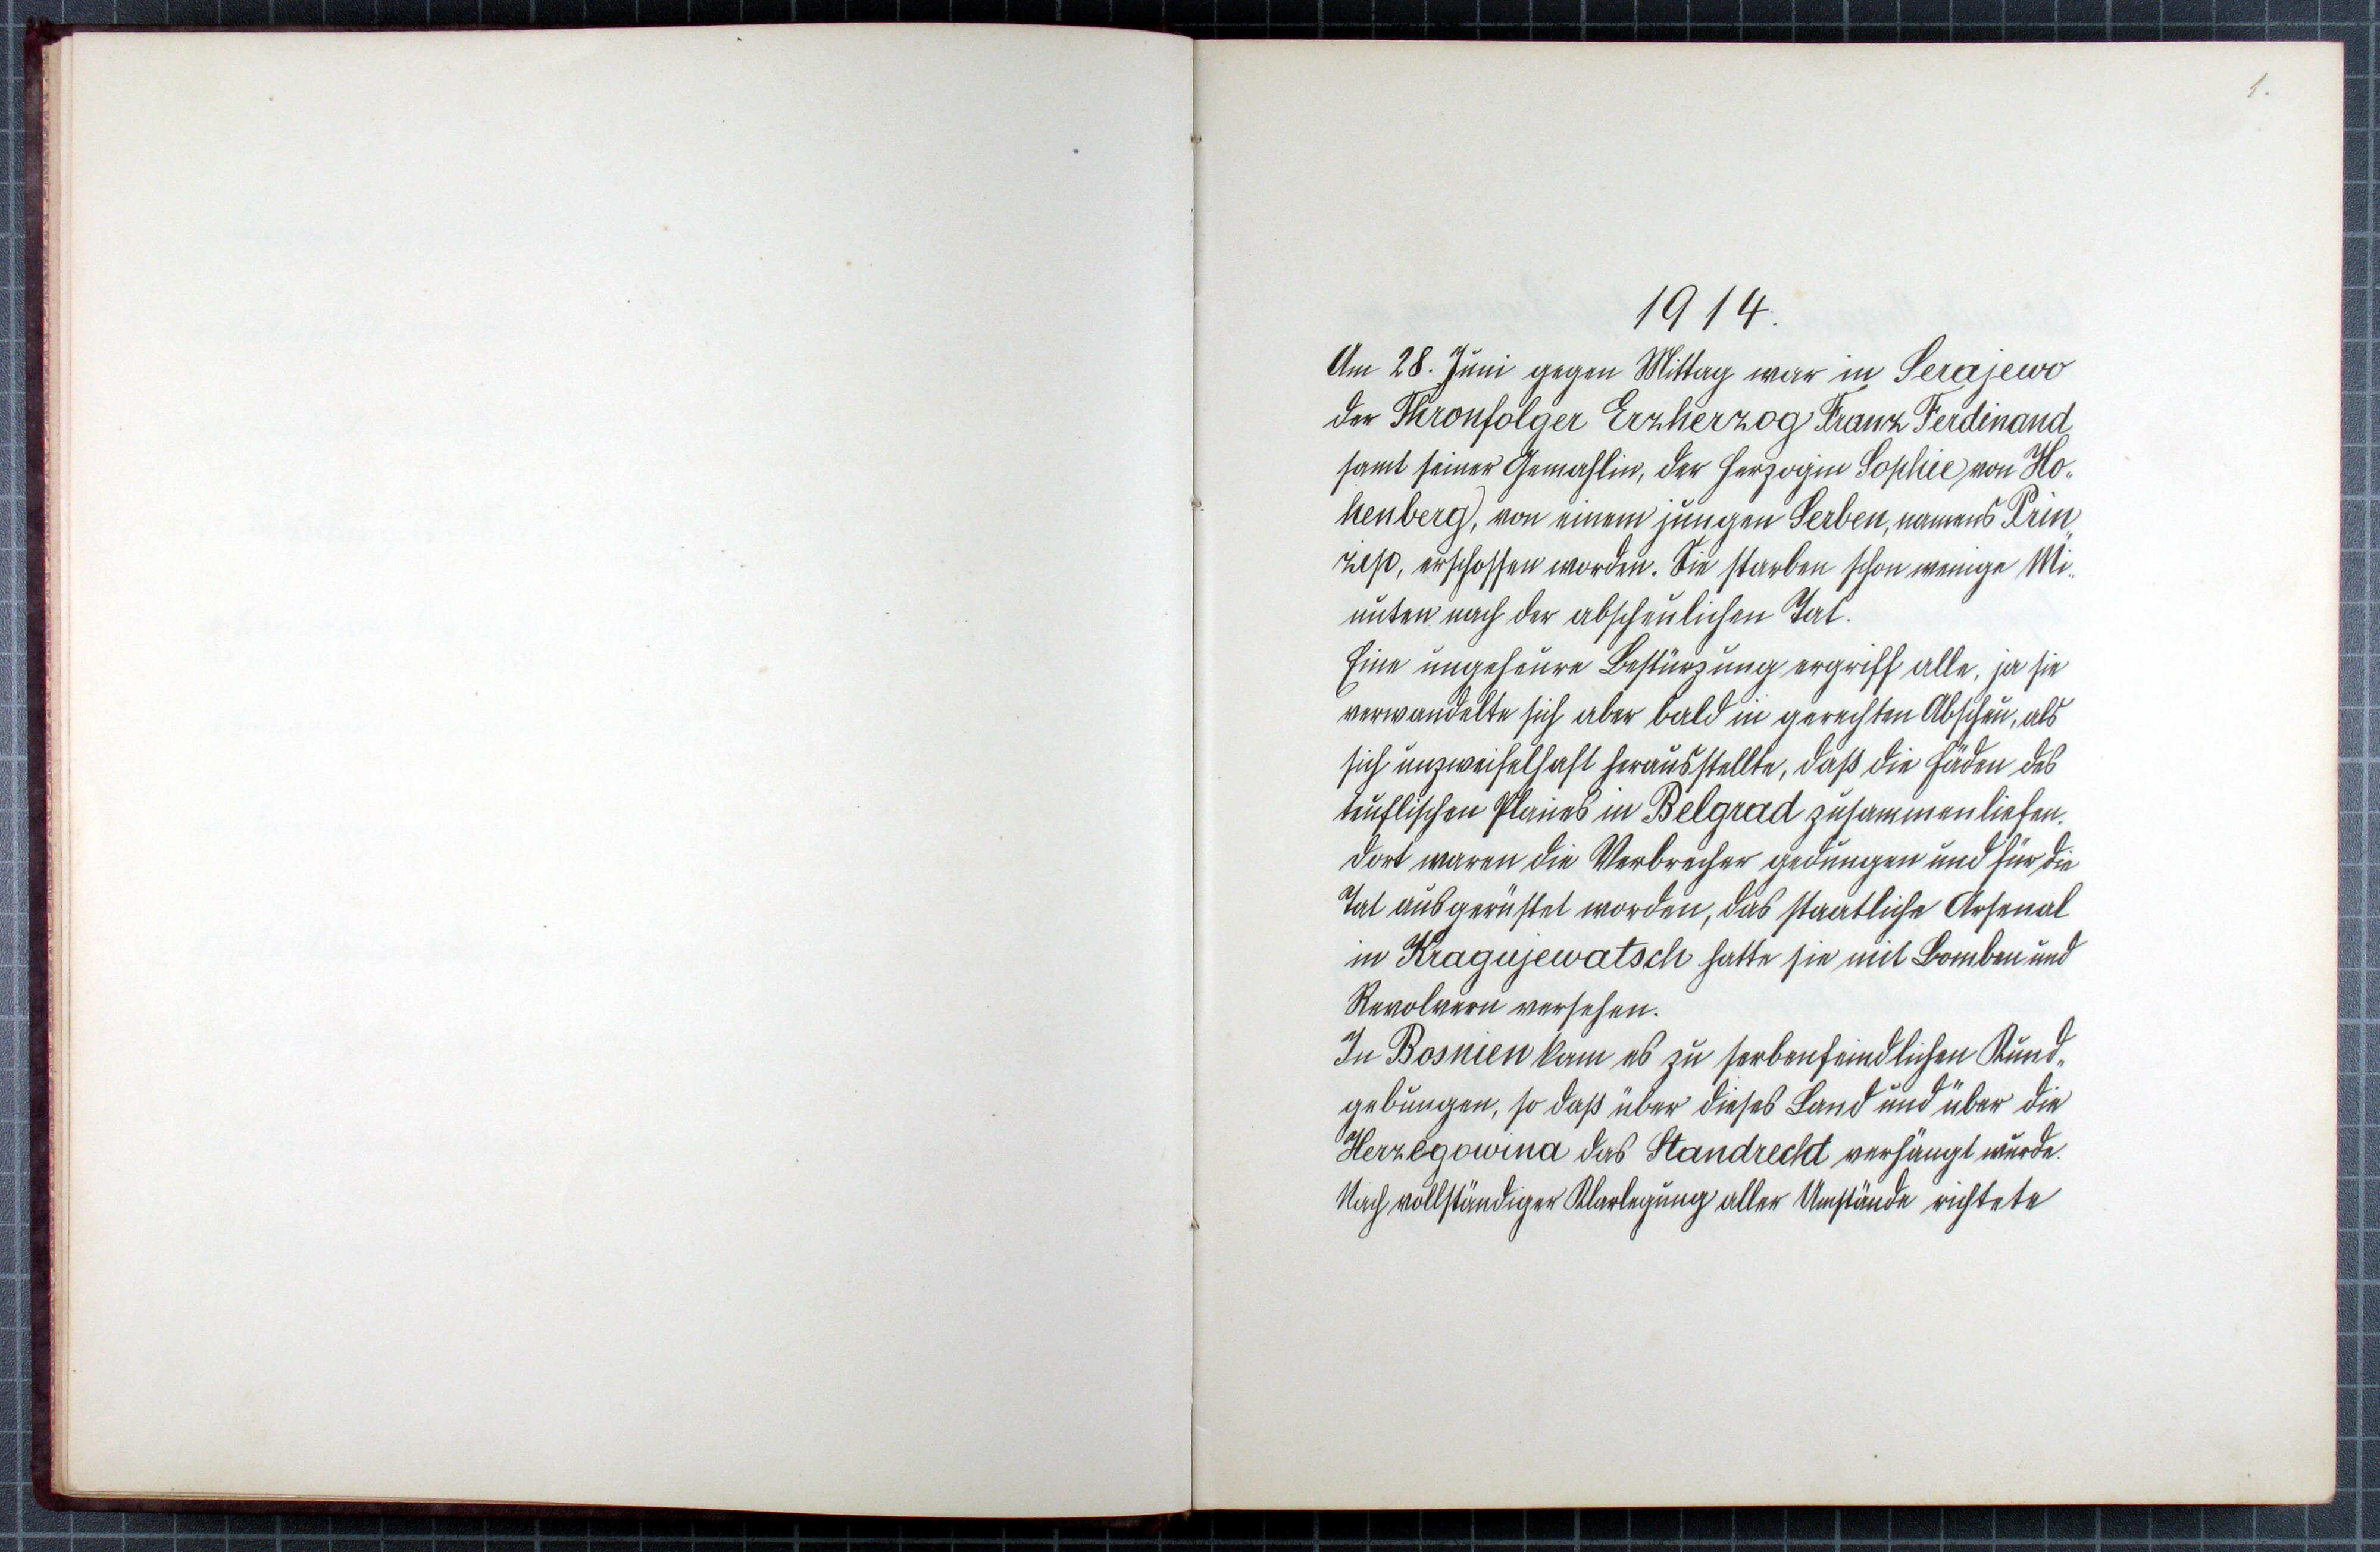 1.
1914.
Am 28. Juni gegen Mittag war in Serajewo
der Thronfolger Erzherzog Franz Ferdinand
samt seiner Gemahlin, der Herzogin Sophie von Ho„
henberg, von einem jungen Serben, namens Prin„
zip, erschossen worden. Sie starben schon wenige Mi„
nuten nach der abscheulichen Tat.
Eine ungeheure Bestürzung ergriff alle, ja sie
verwandelte sich aber bald in gerechten Abscheu, als
sich unzweifelhaft herausstellte, daß die Fäden des
teuflischen Planes in Belgrad zusammenliefen.
Dort waren die Verbrecher gedungen und für die
Tat ausgerüstet worden, das staatliche Arsenal
in Kragujewatsch hatte sie mit Bomben und
Revolvern versehen.
In Bosnien kam es zu serbenfeindlichen Kund„
gebungen, so daß über dieses Land und über die
Herzegowina das Standrecht verhängt wurde.
Nach vollständiger Klarlegung aller Umstände richtete